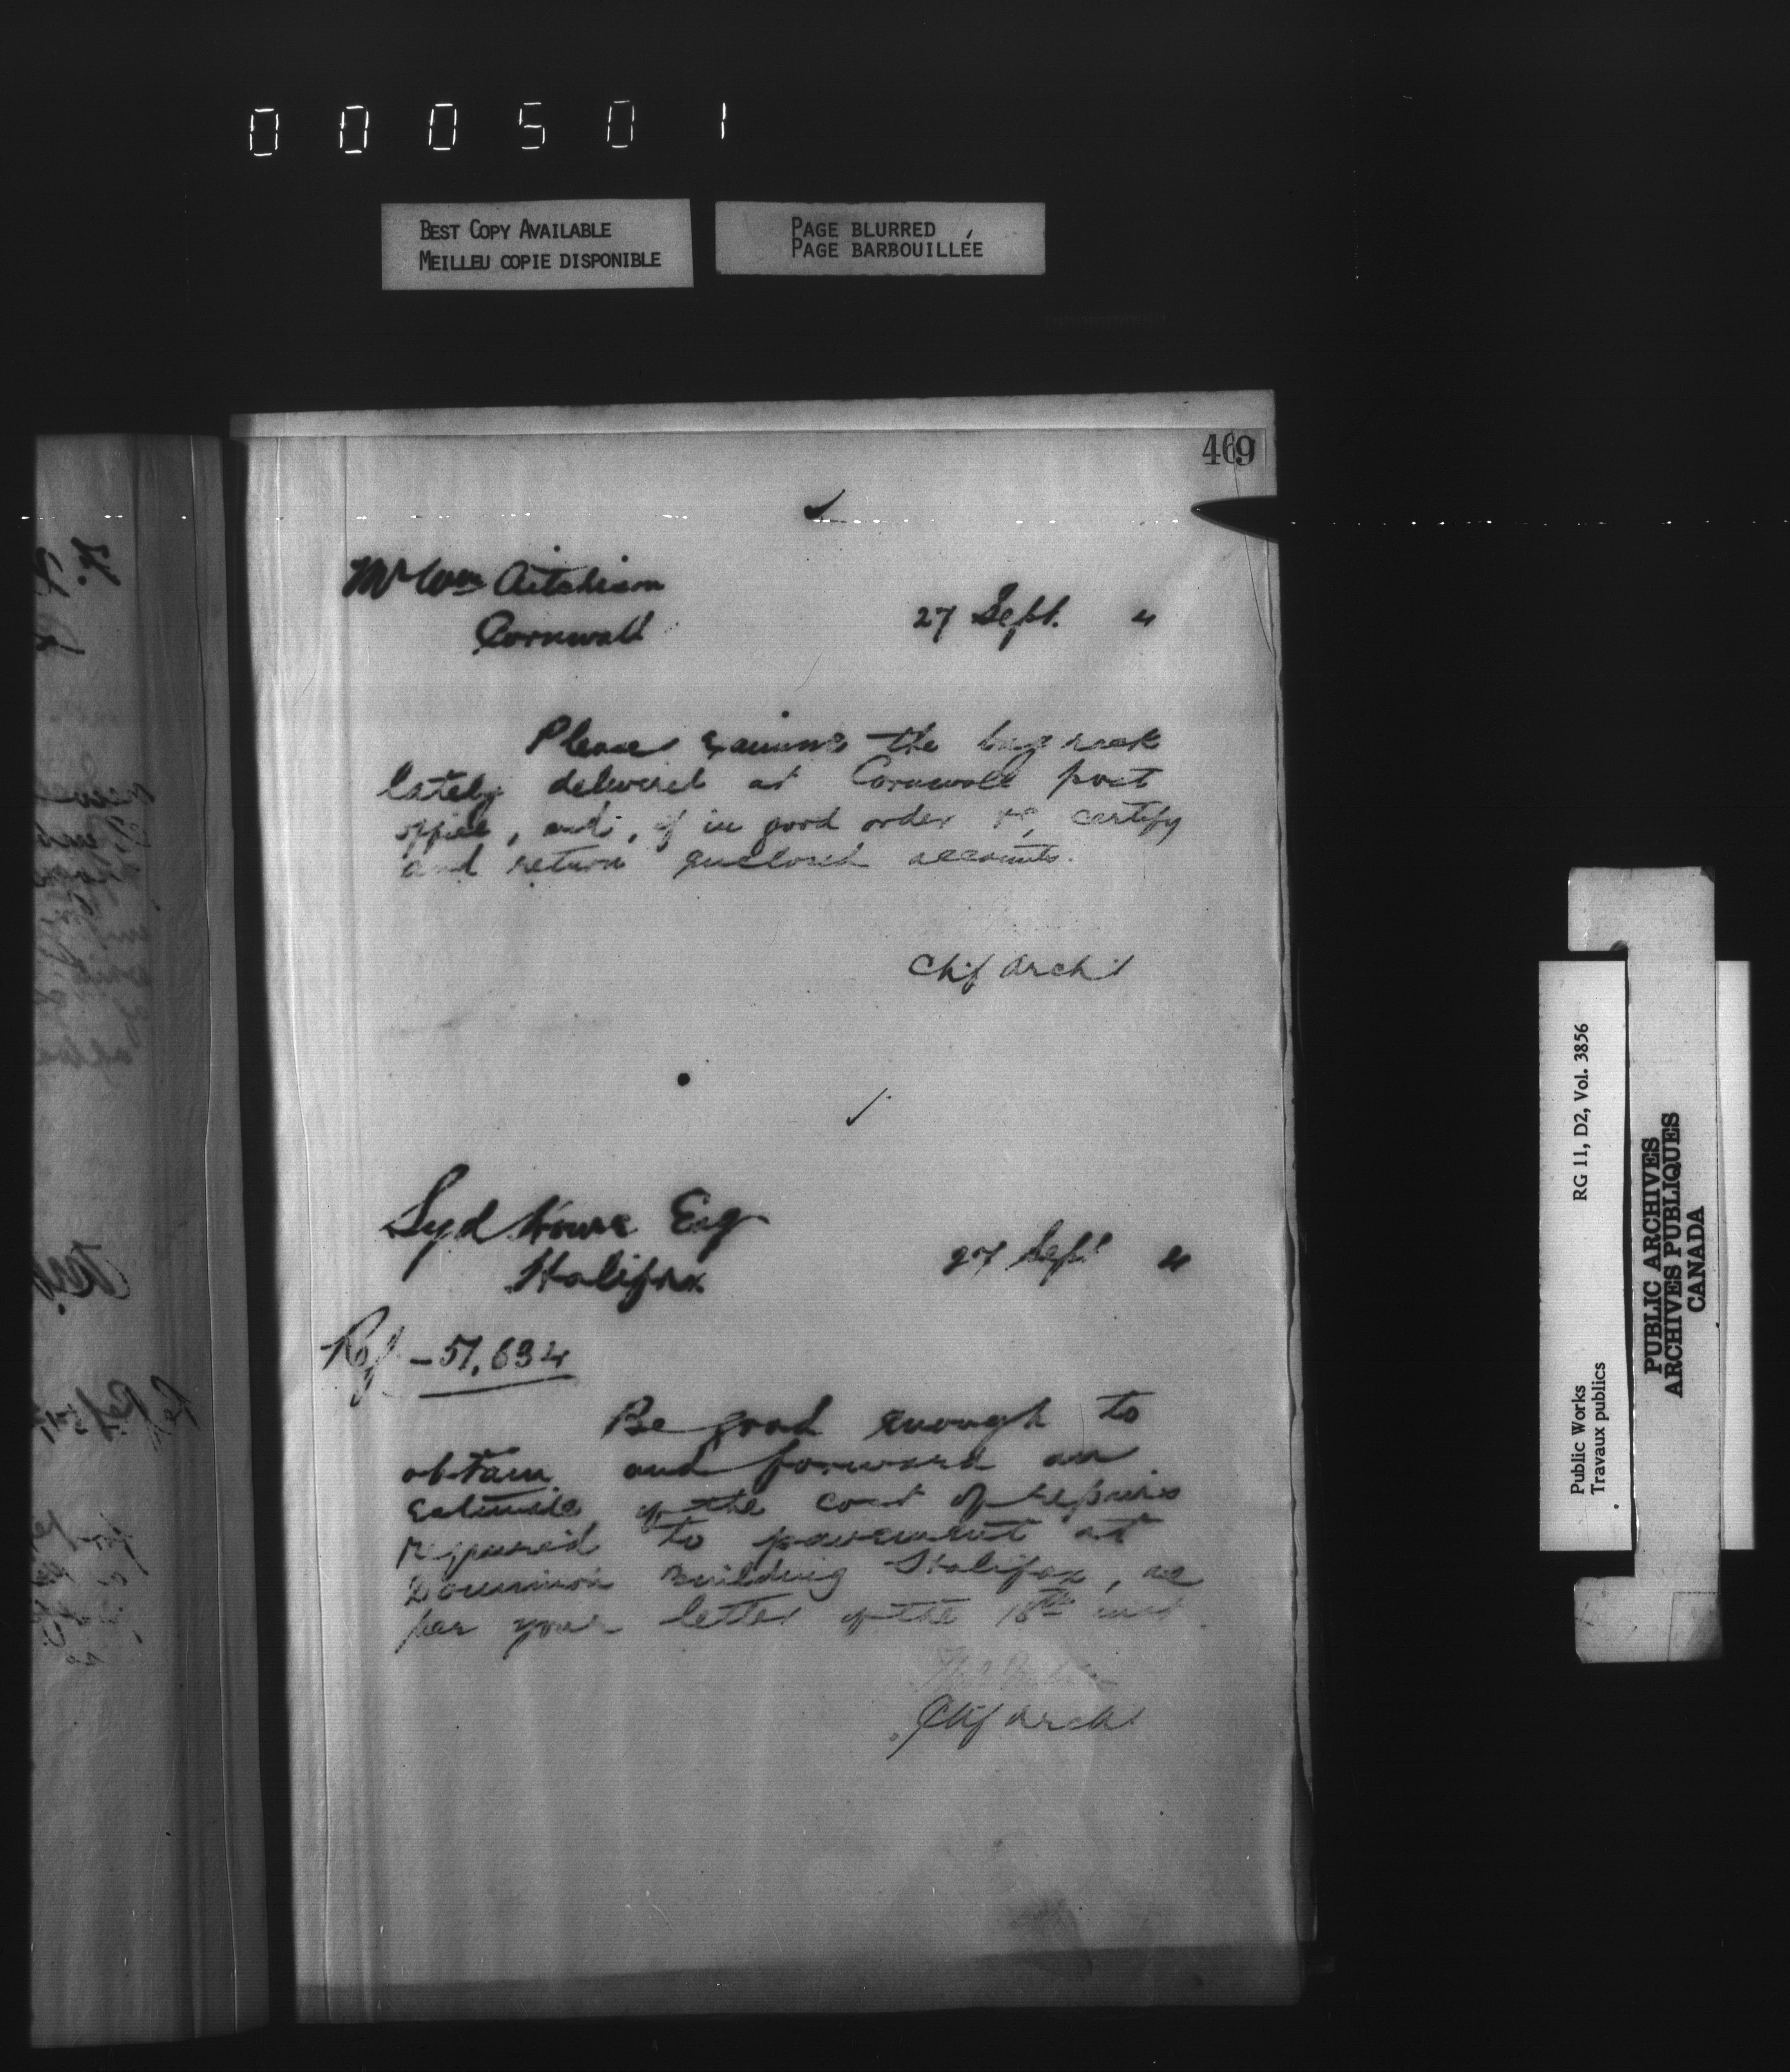 000501
BEST COPY AVAILABLE
MEILLEU COPIE DISPONIBLE
PAGE BLURRED
PAGE BARBOUILLÉE
469
Mr Wm Aitchison
Cornwall
27 Sept. "
Please examine the bag rack
lately delivered at Cornwall post
office, and, if in good order &c, certify
and return enclosed accounts.
Chf Archt
Syd Howe Esq
Halifax
27 Sept "
Ref - 51,634
Be good enough to
obtain and forward an
estimate of the cost of repairs
required to pavement at
Dominion Building Halifax, as
per your letter of the 18th inst
Chf Archt
RG 11, D2, Vol. 3856
Public Works
Travaux publics
PUBLIC ARCHIVES
ARCHIVES PUBLIQUES
CANADA